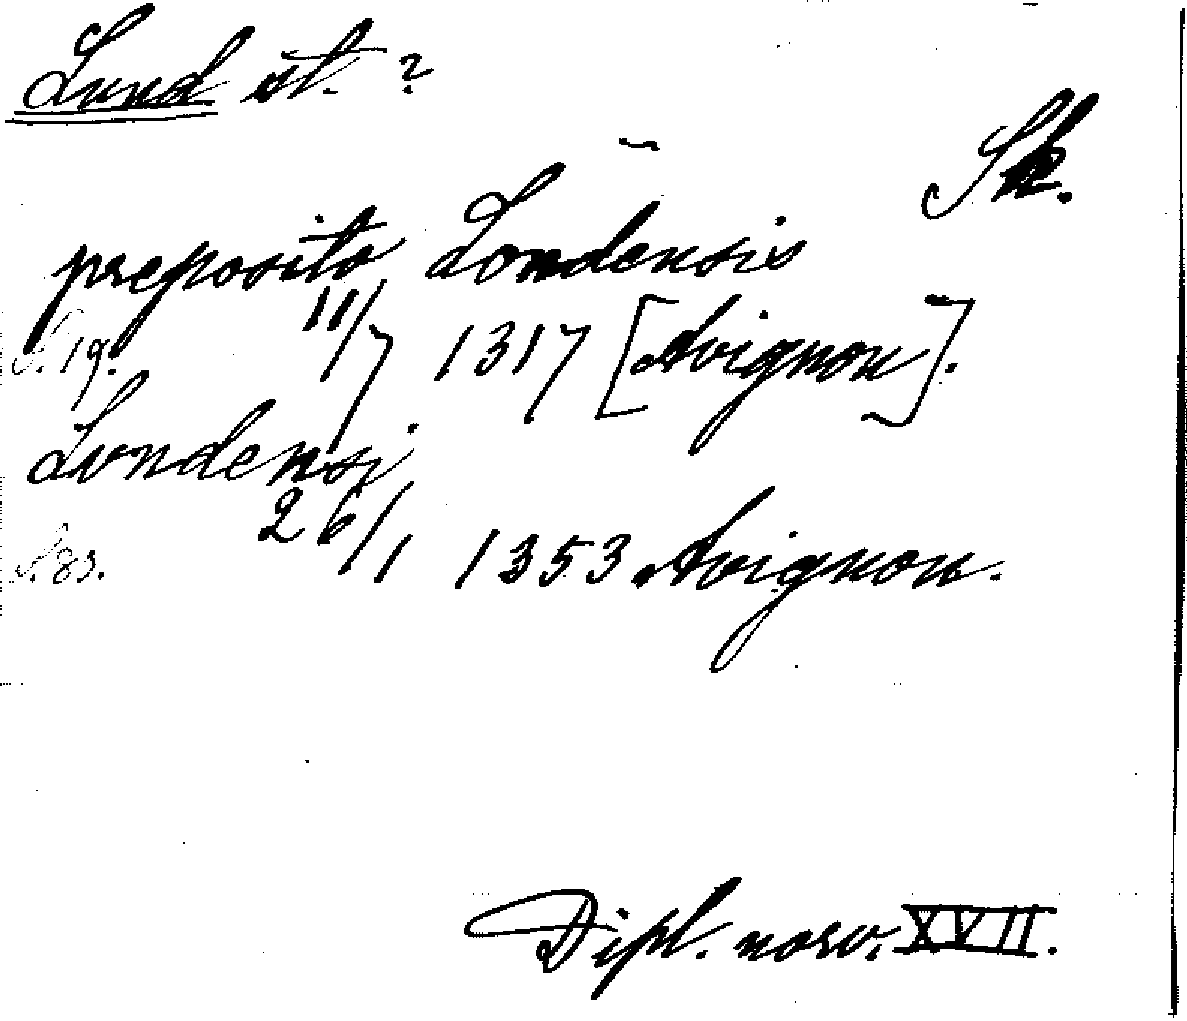 Lund st. ?
Sk.
preposito Londensis
s. 19. 11/7 1317 [Avignon].
Lundensi
s. 83. 26/1 1353 Avignon.
Dipl. norv. XVII.